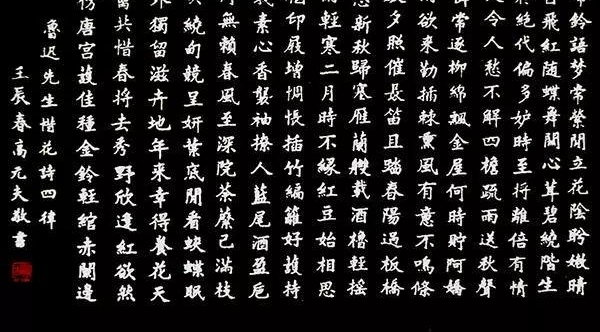 鈴語夢常縈閒立花陰盼嫩晴
飛紅随蝶舞關心茸碧繞階生
絕代偏多妒時至將離倍有情
令人愁不解四檐疏雨送秋聲
常逐柳綿飄金屋何時貯阿嬌
雨欲來勤插棘薰風有意不鳴條
夕照催長笛且踏春陽過板橋
恐新秋歸塞雁蘭艭載酒櫓輕搖
雨輕寒二月時不緣紅豆始相思
印屐增惆悵插竹編籬好護持
我素心香襲袖撩人藍尾酒盈卮
無賴春風至深院荼蘼已滿枝
繞甸競呈妍葉底閒看蛺蝶眠
外獨留滋卉地年來幸得養花天
共惜春將去秀野欣逢紅欲然
仿唐宮護佳種金鈴輕綰赤闌邊
魯迅先生惜花詩四律
壬辰春高元夫敬書